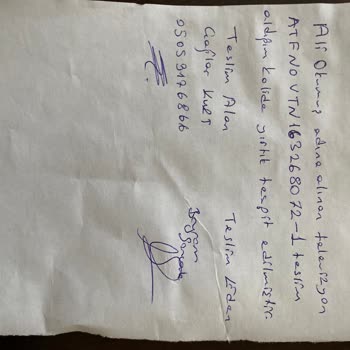 Ali Okumuş adına alınan televizyon
ATF NO VTN163268072-1 teslim
aldığım kolide yırtık tespit edilmiştir.
Teslim Alan
Çağlar KURT
05059176866
Teslim Eden
Bayram